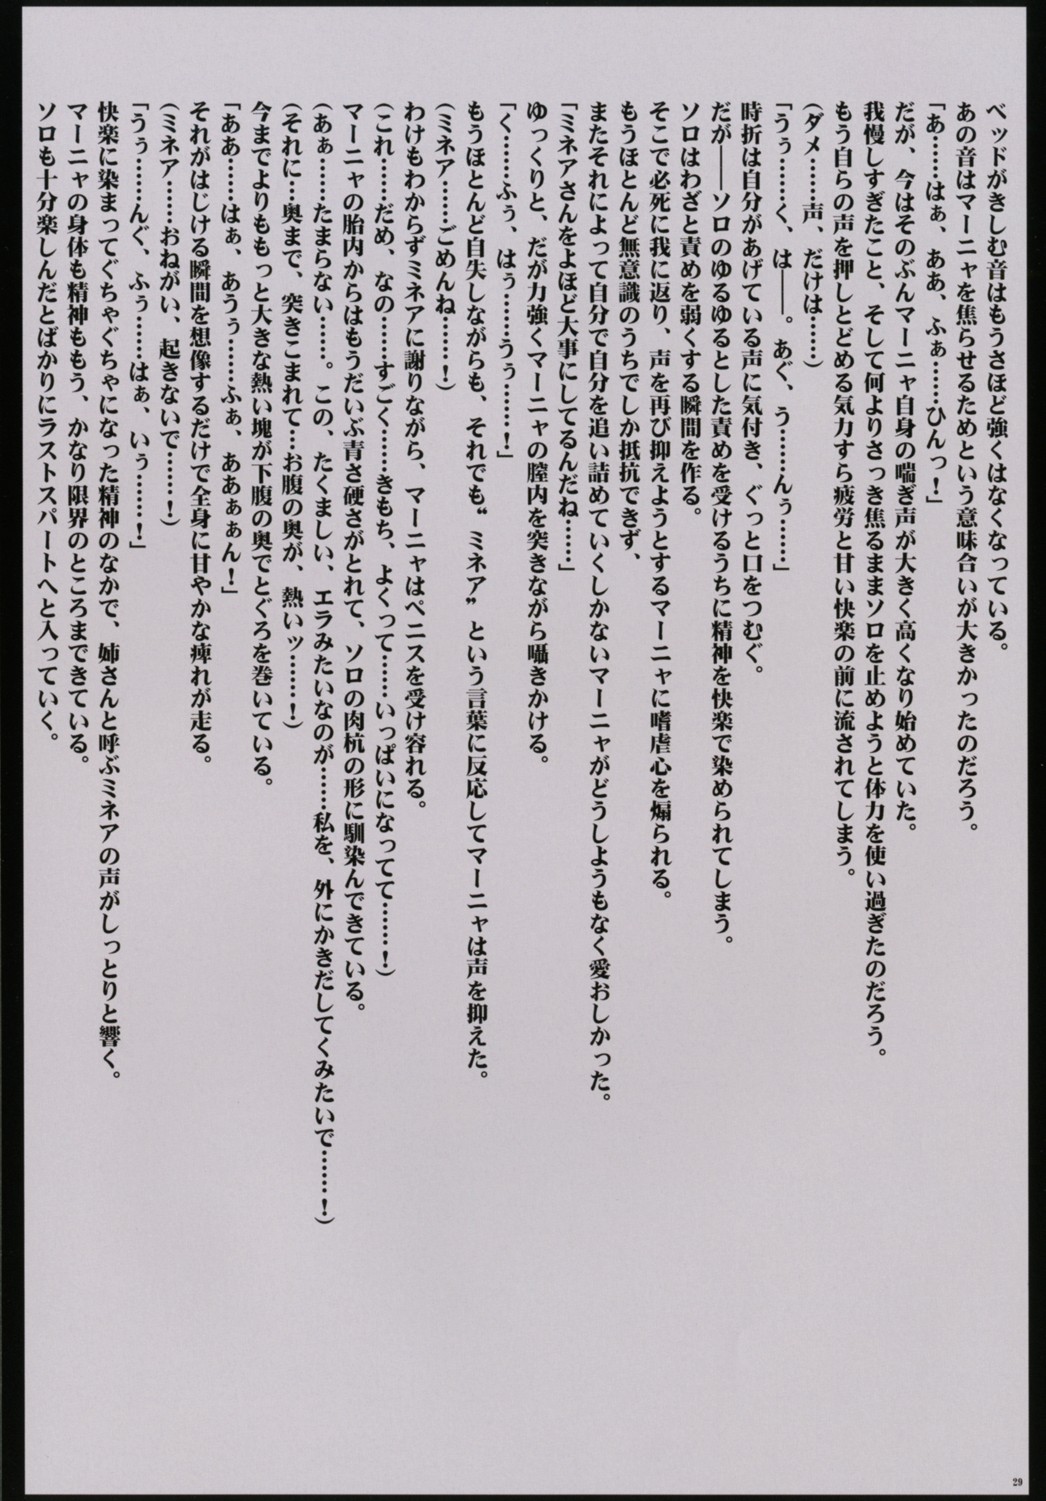 ベッドがきしむ音はもうさほど強くはなくなっている。
あの音はマーニャを焦らせるためという意味合いが大きかったのだろう。
「あ……はぁ、ああ、ふぁ……ひんっ！」
だが、今はそのぶんマーニャ自身の喘ぎ声が大きく高くなり始めていた。
我慢しすぎたこと、そして何よりさっき焦るままソロを止めようと体力を使い過ぎたのだろう。
もう自らの声を押しとどめる気力すら疲労と甘い快楽の前に流されてしまう。
(ダメ……声、だけは……)
「うぅ……く、は――。あぐ、う……んぅ……」
時折は自分があげている声に気付き、ぐっと口をつむぐ。
だが――ソロのゆるゆるとした責めを受けるうちに精神を快楽で染められてしまう。
ソロはわざと責めを弱くする瞬間を作る。
そこで必死に我に返り、声を再び抑えようとするマーニャに嗜虐心を煽られる。
もうほとんど無意識のうちでしか抵抗できず、
またそれによって自分で自分を追い詰めていくしかないマーニャがどうしようもなく愛おしかった。
「ミネアさんをよほど大事にしてるんだね……」
ゆっくりと、だが力強くマーニャの膣内を突きながら囁きかける。
「く……ふぅ、はぅ……うぅ……！」
もうほとんど自失しながらも、それでも〝ミネア〟という言葉に反応してマーニャは声を抑えた。
(ミネア……ごめんね……！)
わけもわからずミネアに謝りながら、マーニャはペニスを受け容れる。
(これ……だめ、なの……すごく……きもち、よくって……いっぱいになってて……！)
マーニャの胎内からはもうだいぶ青さ硬さがとれて、ソロの肉杭の形に馴染んできている。
(あぁ……たまらない……。この、たくましい、エラみたいなのが……私を、外にかきだしてくみたいで……！)
(それに…奥まで、突きこまれて…お腹の奥が、熱いッ……！)
今までよりももっと大きな熱い塊が下腹の奥でとぐろを巻いている。
「ああ……はぁ、あうぅ……ふぁ、ああぁぁん！」
それがはじける瞬間を想像するだけで全身に甘やかな痺れが走る。
(ミネア……おねがい、起きないで……！)
「うぅ……んぐ、ふぅ……はぁ、いぅ……！」
快楽に染まってくちゃぐちゃになった精神のなかで、姉さんと呼ぶミネアの声がしっとりと響く。
マーニャの身体も精神ももう、かなり限界のところまできている。
ソロも十分楽しんだとばかりにラストスパートへと入っていく。
29